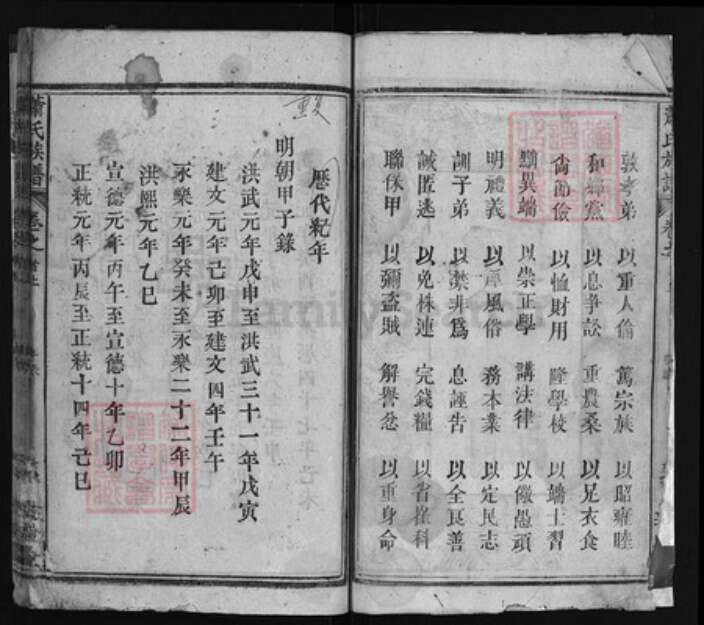 敦孝弟 以重人倫 篤宗族 以昭雍睦
和鄉黨 以息爭訟 重農桑 以足衣食
尚節儉 以恤財用 隆學校 以端士習
黜異端 以崇正學 講法律 以儆愚頑
明禮義 以厚風俗 務本業 以定民志
訓子弟 以禁非爲 息誣告 以全良善
誡匿逃 以免株連 完錢糧 以省催科
聯保甲 以彌盜賊 解讐忿 以重身命
歷代紀年
明朝甲子錄
洪武元年戊申至洪武三十一年戊寅
建文元年己卯至建文四年壬午
永樂元年癸未至永樂二十二年甲辰
洪熙元年乙巳
宣德元年丙午至宣德十年乙卯
正統元年丙辰至正統十四年己巳
蕭氏族譜